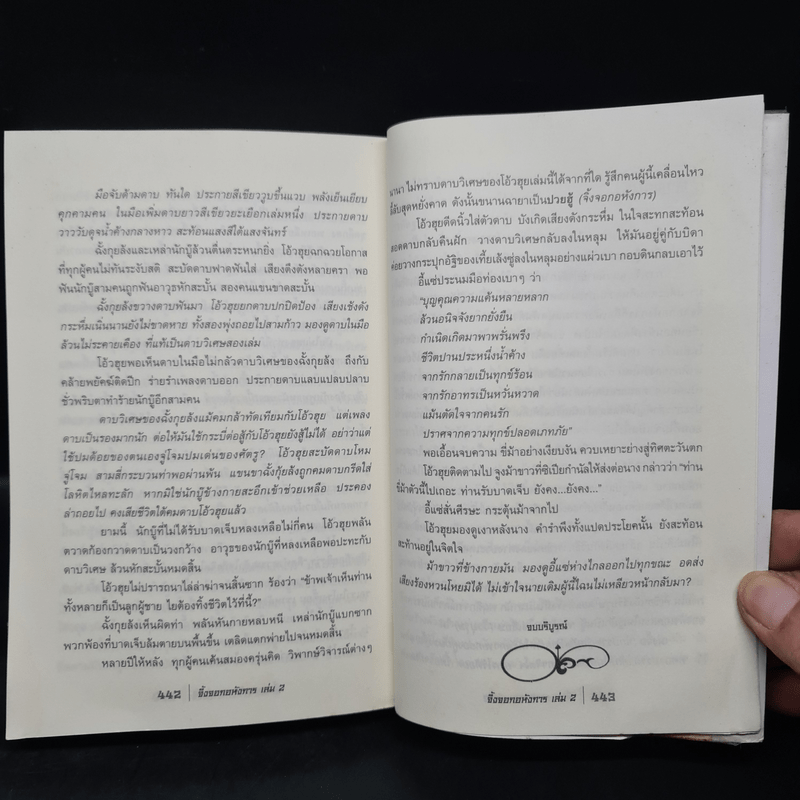 มือจับด้ามดาบ ทันใด ประกายสีเขียววูบขึ้นแวบ พลังเย็นเยียบ
คุกคามคน ในมือเพิ่มดาบยาวสีเขียวยะเยือกเล่มหนึ่ง ประกายดาบ
วาววับดุจน้ำค้างกลางหาว สะท้อนแสงสีใต้แสงจันทร์
ฉั้งกุยลังและเหล่านักบู๊ล้วนตื่นตระหนกยิ่ง โอ้วฮุยฉกฉวยโอกาส
ที่ทุกผู้คนไม่ทันระงับสติ สะบัดดาบฟาดฟันใส่ เสียงดังติงหลายครา พอ
ฟันนักบู๊สามคนถูกฟันอาวุธหักสะบั้น สองคนแขนขาดสะบั้น
ฉั้งกุยลังขวางดาบฟันมา โอ้วฮุยยกดาบปกปิดป้อง เสียงเช้งดัง
กระหึ่มเนิ่นนานยังไม่ขาดหาย ทั้งสองพุ่งถอยไปสามก้าว มองดูดาบในมือ
ล้วนไม่ระคายเคือง ที่แท้เป็นดาบวิเศษสองเล่ม
โอ้วฮุยพอเห็นดาบในมือไม่กลัวดาบวิเศษของฉั้งกุยลัง ถึงกับ
คล้ายพยัคฆ์ติดปีก ร่ายรำเพลงดาบออก ประกายดาบแลบแปลบปลาบ
ชั่วพริบตาทำร้ายนักบู๊อีกสามคน
ดาบวิเศษของฉั้งกุยลังแม้คมกล้าทัดเทียมกับโอ้วฮุย แต่เพลง
ดาบเป็นรองมากนัก ต่อให้มันใช้กระบี่ต่อสู้กับโอ้วฮุยยังสู้ไม่ได้ อย่าว่าแต่
ใช้ปมด้อยของตนเองจู่โจมปมเด่นของศัตรู? โอ้วฮุยสะบัดดาบโหม
จู่โจม สามสี่กระบวนท่าพอผ่านพ้น แขนขาฉั้งกุยลังถูกคมดาบกรีดใส่
โลหิตไหลทะลัก หากมิใช่นักบู๊ข้างกายสะอึกเข้าช่วยเหลือ ประคอง
ล่าถอยไป คงเสียชีวิตใต้คมดาบโอ้วฮุยแล้ว
ยามนี้ นักบู๊ที่ไม่ได้รับบาดเจ็บหลงเหลือไม่กี่คน โอ้วฮุยพลัน
ตวาดก้องกวาดดาบเป็นวงกว้าง อาวุธของนักบู๊ที่หลงเหลือพอปะทะกับ
ดาบวิเศษ ล้วนหักสะบั้นหมดสิ้น
โอ้วฮุยไม่ปรารถนาไล่ล่าฆ่าจนสิ้นซาก ร้องว่า "ข้าพเจ้าเห็นท่าน
ทั้งหลายก็เป็นลูกผู้ชาย ไยต้องทิ้งชีวิตไว้ที่นี้?"
ฉั้งกุยลังเห็นผิดท่า พลันหันกายหลบหนี เหล่านักบู๊แบกซาก
พวกพ้องที่บาดเจ็บล้มตายบนพื้นขึ้น เตลิดแตกพ่ายไปจนหมดสิ้น
หลายปีให้หลัง ทุกผู้คนเค้นสมองครุ่นคิด วิพากษ์วิจารณ์ต่างๆ
442 | จิ้งจอกอหังการ เล่ม 2
นานา ไม่ทราบดาบวิเศษของโอ้วฮุยเล่มนี้ได้จากที่ใด รู้สึกคนผู้นี้เคลื่อนไหว
ลี้ลับสุดหยั่งคาด ดังนั้นขนานฉายาเป็นปวยฮู้ (จิ้งจอกอหังการ)
โอ้วฮุยดีดนิ้วใส่ตัวดาบ บังเกิดเสียงดังกระหึ่ม ในใจสะทกสะท้อน
สอดดาบกลับคืนฝัก วางดาบวิเศษกลับลงในหลุม ให้มันอยู่คู่กับบิดา
ค่อยวางกระปุกอัฐิของเทียเล้งซู่ลงในหลุมอย่างแผ่วเบา กอบดินกลบเอาไว้
อี้แซ่ประนมมือท่องเบาๆ ว่า
"บุญคุณความแค้นหลายหลาก
ล้วนอนิจจังยากยั่งยืน
กำเนิดเกิดมาพาพรั่นพรึง
ชีวิตปานประหนึ่งน้ำค้าง
จากรักกลายเป็นทุกข์ร้อน
จากรักอาทรเป็นหวั่นหวาด
แม้นตัดใจจากคนรัก
ปราศจากความทุกข์ปลอดเภทภัย"
พอเอื้อนจบความ ขี่ม้าอย่างเงียบงัน ควบเหยาะย่างสู่ทิศตะวันตก
โอ้วฮุยติดตามไป จูงม้าขาวที่ซิเปียกำนัลให้ส่งต่อนาง กล่าวว่า "ท่าน
ขี่ม้าตัวนี้ไปเถอะ ท่านรับบาดเจ็บ ยังคง...ยังคง..."
อี้แซ่สั่นศีรษะ กระตุ้นม้าจากไป
โอ้วฮุยมองดูเงาหลังนาง คำรำพึงทั้งแปดประโยคนั้น ยังสะท้อน
สะท้านอยู่ในจิตใจ
ม้าขาวที่ข้างกายมัน มองดูอี้แซ่ห่างไกลออกไปทุกขณะ อดส่ง
เสียงร้องหวนโหยมิได้ ไม่เข้าใจนายเดิมผู้นี้ไฉนไม่เหลียวหน้ากลับมา?
จบบริบูรณ์
จิ้งจอกอหังการ เล่ม 2 | 443